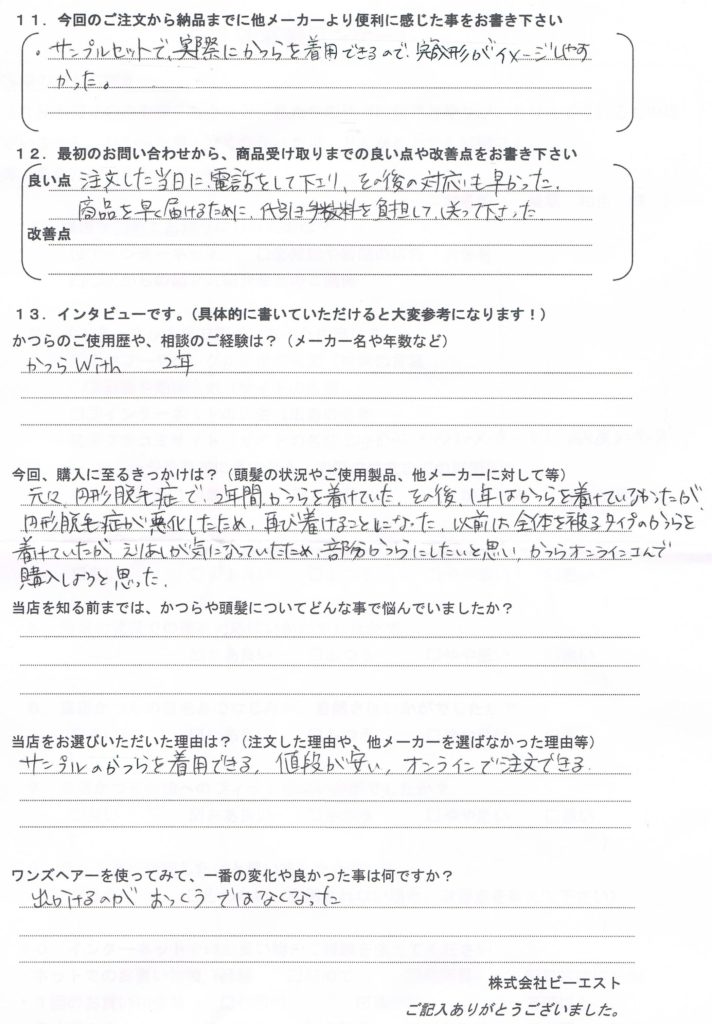 １１．今回のご注文から納品までに他メーカーより便利に感じた事をお書き下さい
・サンプルセットで、実際にかつらを着用できるので、完成形がイメージしやす
かった。
１２．最初のお問い合わせから、商品受け取りまでの良い点や改善点をお書き下さい
良い点 注文した当日に、電話をして下さり、その後の対応も早かった。
商品を早く届けるために、代引き手数料を負担して、送って下さった
改善点
１３．インタビューです。（具体的に書いていただけると大変参考になります！）
かつらのご使用歴や、相談のご経験は？（メーカー名や年数など）
かつらWith 2年
今回、購入に至るきっかけは？（頭髪の状況やご使用製品、他メーカーに対して等）
元々、円形脱毛症で、2年間かつらを着けていた。その後、1年はかつらを着けていなかったが
円形脱毛症が悪化したため、再び着けることになった。以前は全体を被るタイプのかつらを
着けていたが、えりあしが気になっていたため、部分かつらにしたいと思い、かつらオンラインコムで
購入しようと思った。
当店を知る前までは、かつらや頭髪についてどんな事で悩んでいましたか？
当店をお選びいただいた理由は？（注文した理由や、他メーカーを選ばなかった理由等）
サンプルのかつらを着用できる、値段が安い、オンラインで注文できる。
ワンズヘアーを使ってみて、一番の変化や良かった事は何ですか？
出かけるのが おっくう ではなくなった
株式会社ビーエスト
ご記入ありがとうございました。